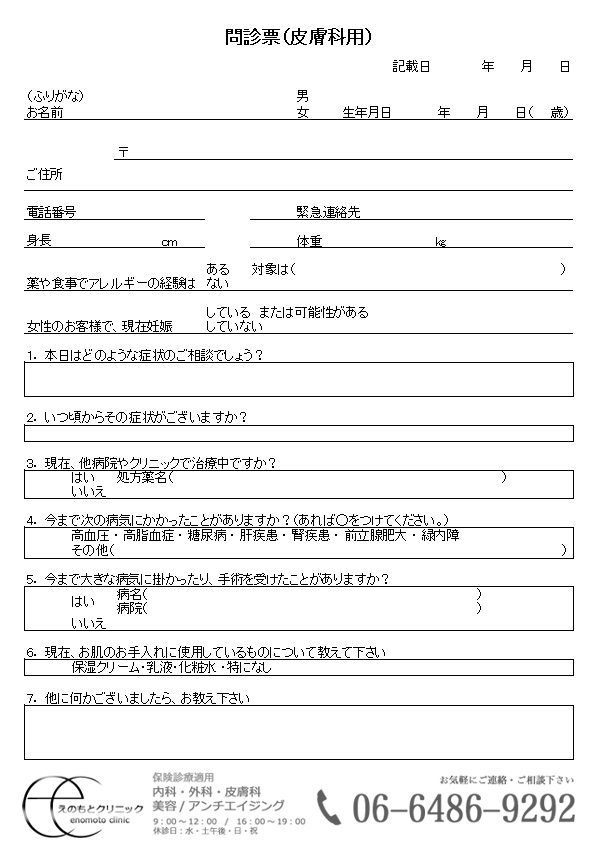 問診票（皮膚科用）
記載日　　年　月　日
（ふりがな）　　男
お名前　　女　　生年月日　　年　月　日（　歳）
〒
ご住所
電話番号　　緊急連絡先
身長　　cm　　体重　　kg
ある　対象は（　　）
薬や食事でアレルギーの経験は　ない
している　または可能性がある
女性のお客様で、現在妊娠　していない
1. 本日はどのような症状のご相談でしょう？
2. いつ頃からその症状がございますか？
3. 現在、他病院やクリニックで治療中ですか？
はい　処方薬名（　　）
いいえ
4. 今まで次の病気にかかったことがありますか？（あれば〇をつけてください。）
高血圧・高脂血症・糖尿病・肝疾患・腎疾患・前立腺肥大・緑内障
その他（　　）
5. 今まで大きな病気に掛かったり、手術を受けたことがありますか？
はい　病名（　　）
病院（　　）
いいえ
6. 現在、お肌のお手入れに使用しているものについて教えて下さい
保湿クリーム・乳液・化粧水・特になし
7. 他に何かございましたら、お教え下さい
えのもとクリニック
enomoto clinic
保険診療適用
内科・外科・皮膚科
美容/アンチエイジング
9：00～12：00 / 16：00～19：00
休診日：水・土午後・日・祝
お気軽にご連絡・ご相談下さい
06-6486-9292